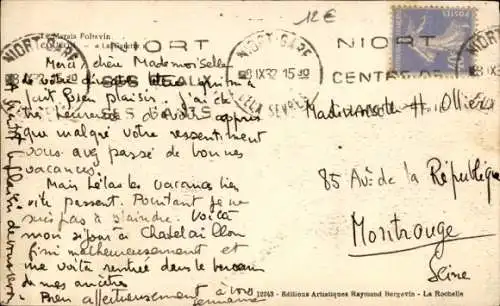 Le Marais Poitevin
12€
NIORT-GARE
8 IX 32 15 10
NIORT
NIORT
Merci chère Mademoiselle
de votre
fait bien plaisir. J'ai été
très heureuse d'avoir appris
que malgré votre ressentiment
vous avez passé de bonnes
vacances.
Mais hélas les vacances bien
vite passent. Pourtant je ne
suis pas à plaindre. Voilà
mon séjour à Chatelaillon
fini malheureusement et
me voilà rentrée dans le berceau
de mes ancêtres
Bien affectueusement à vous
Germaine
Mademoiselle H. Ollier
85 Av. de la République
Montrouge
Seine
12243 - Editions Artistiques Raymond Bergevin - La Rochelle